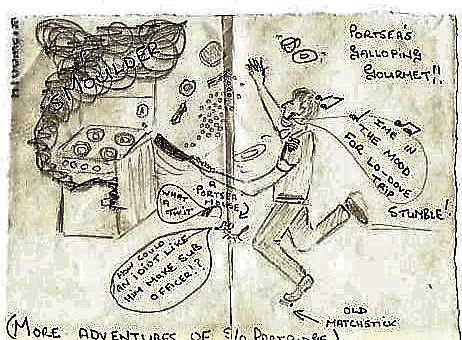 PORTSEA'S
GALLOPING
GOURMET!!
SMOULDER
I'ME IN
THE MOOD
FOR LO-OOVE
TRIP
STUMBLE!
WHAT
A
TWIT
A
PORTSEA
MOUSE
HOW COULD
AN IDIOT LIKE
HIM MAKE SUB
OFFICER!?
OLD
MATCHSTICK
(MORE ADVENTURES OF S/O PARTRIDGE)